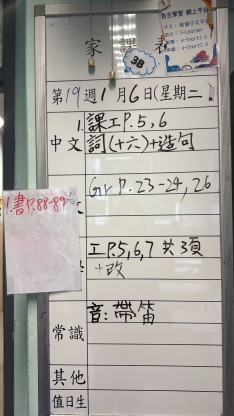 家課表
3B
自主學習 網上平台
第19週1月6日(星期二)
1.課工P.5,6
中文 詞(十六)+造句
Gr P. 23-24, 26
1.書P.88-89
工P.5,6,7 共3頁
+改
音:帶笛
常識
其他
值日生